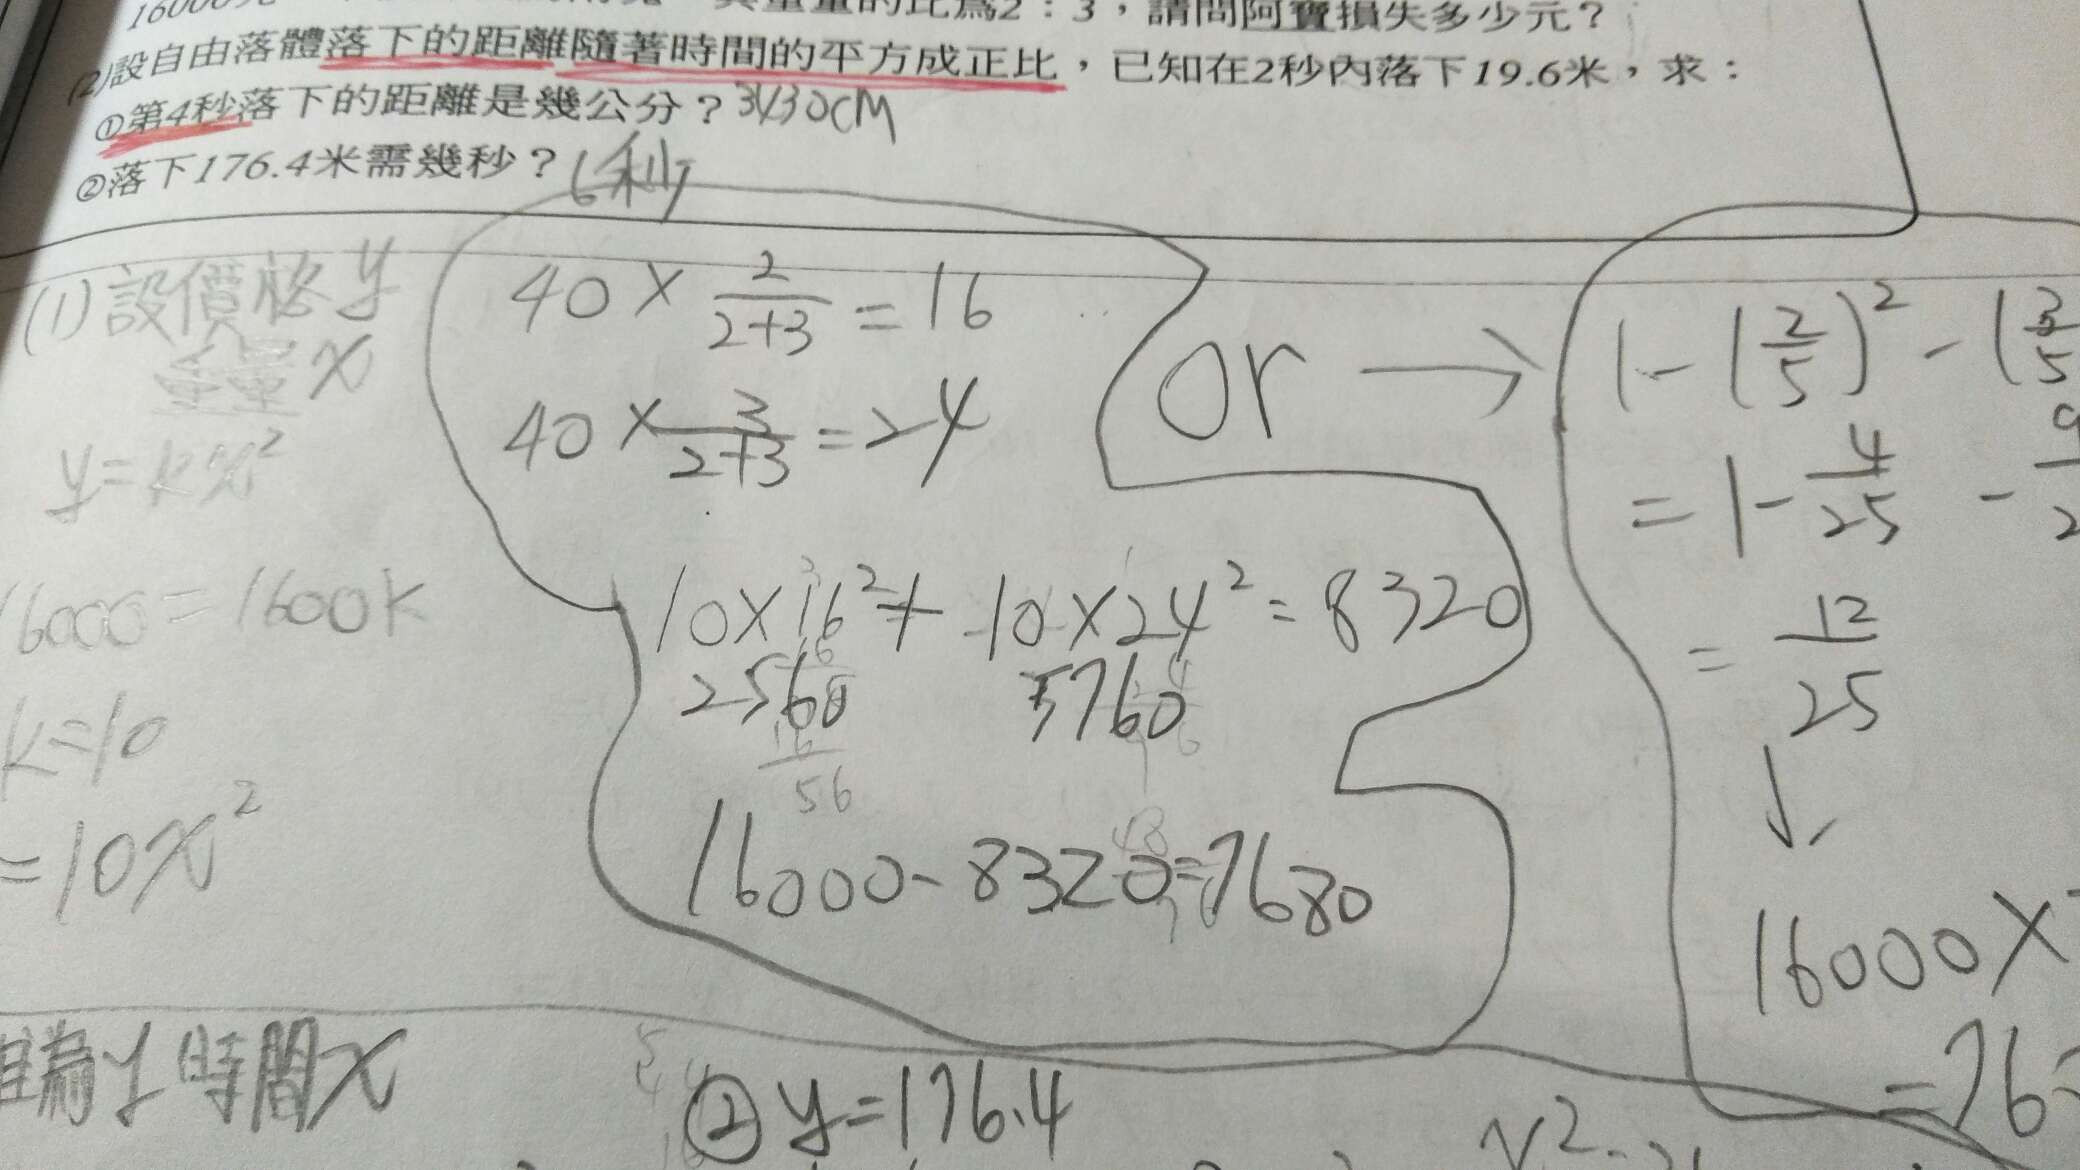 的比為2：3，請問阿寶損失多少元？
(2)設自由落體落下的距離隨著時間的平方成正比，已知在2秒內落下19.6米，求：
①第4秒落下的距離是幾公分？3430cm
②落下176.4米需幾秒？6秒
(1)設價格y
重量x
y=kx²
16000=1600k
k=10
=10x²
40×2/(2+3)=16
40×3/(2+3)=24
10×16²+10×24²=8320
2560 5760
56
16000-8320=7680
or →
1-(2/5)²-(3/5
=1-4/25-9/2
=12/25
↓
16000×
=76
離為y 時間x
②y=176.4